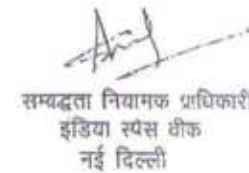 सम्बद्धता नियामक प्राधिकारी
इंडिया स्पेस वीक
नई दिल्ली